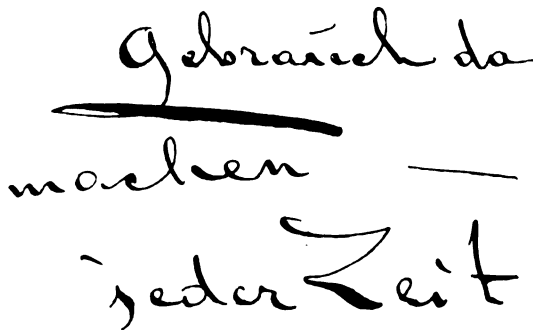 Gebrauch da
machen —
jeder Zeit